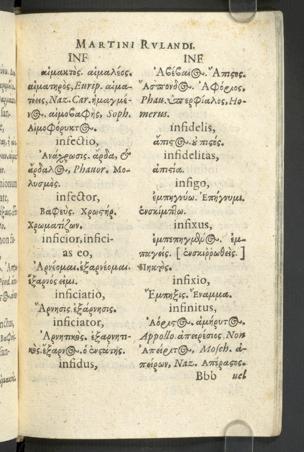 MARTINI RVLANDI.
INF
αἱμακτός. αἱμαλέος.
αἱματηρός, Eurip. αἱμα-
τόεις, Naz. Car. ἡμαγμέ-
νος. αἱμοβαφής, Soph.
Αἱμοφόρυκτος.
infectio,
Ἀνάχρωσις. ἄρδα, &
ἀρδαλος, Phauor. Μο-
λυσμός.
infector,
Βαφεύς. Χρωστήρ.
Χρωματίζων.
inficior, infici-
as eo,
Ἀρνέομαι. ἐξαρνέομαι.
ἔξαρνός εἰμι.
inficiatio,
Ἄρνησις. ἐξάρνησις.
inficiator,
Ἀρνητικός. ἐξαρνητι-
κός. ἔξαρνος. ὁ
infidus,
INF
Ἀβέβαιος. Ἄπιστος.
Ἄσπονδος.
Phau. Ὑπερφίαλος, Ho-
merus.
infidelis,
ἄπιστος.
infidelitas,
ἀπιστία.
infigo,
ἐμπηγνύω. Ἐπήγνυμι.
ἐνσκίμπτω.
infixus,
ἐμπεπηγμένος. ἐμ-
παγείς. [ἐνσκιρρωθείς]
Πηκτός.
infixio,
Ἔμπηξις. Ἔναμμα.
infinitus,
Ἀόριστος. ἀμήρυτος.
Appollo. ἀπειρέσιος. Non
Ἀπείριτος, Mosch. ἀ-
πείρων, Naz. Ἀπέραστος.
Bbb vel